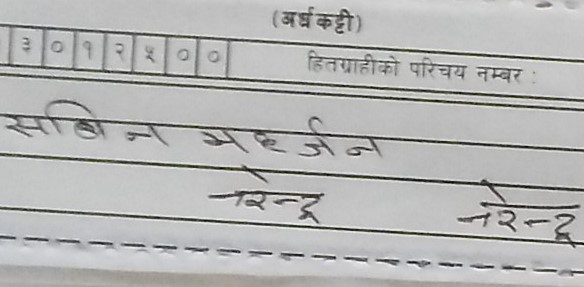 (अर्धकट्टी)
३०१२५०० हितग्राहीको परिचय नम्बर :
सबिन महर्जन
नरेन्द्र नरेन्द्र